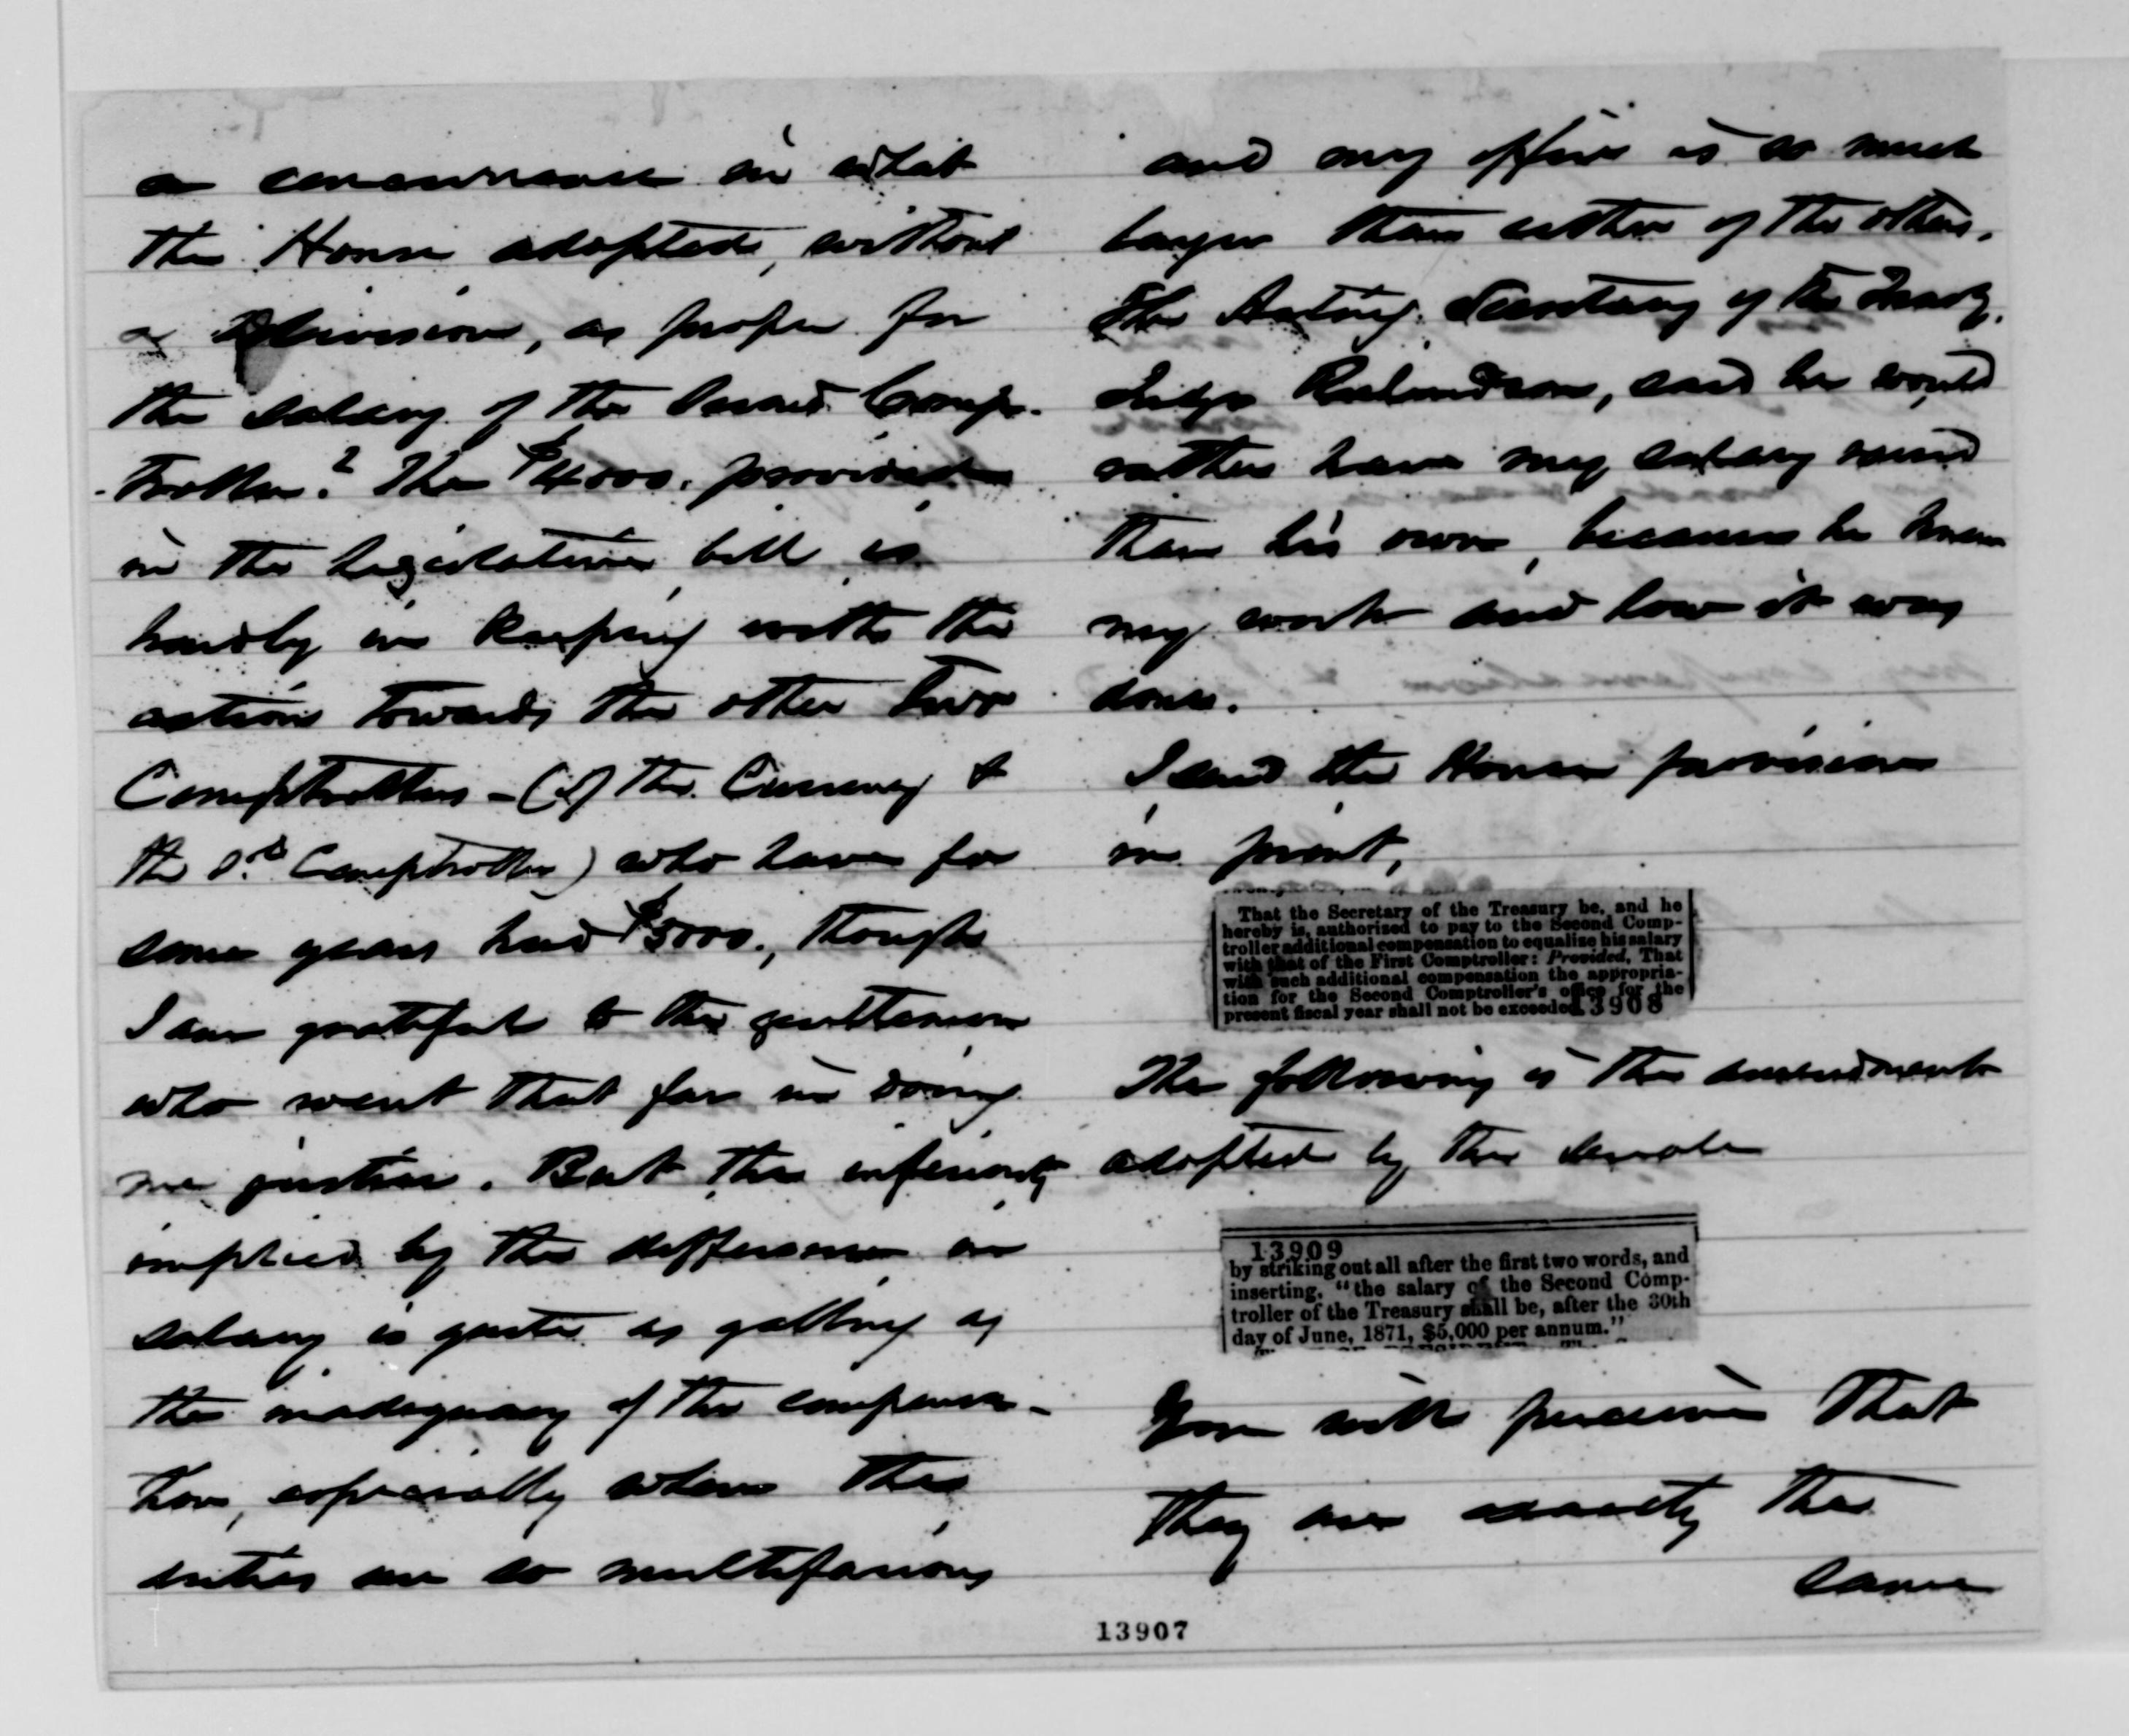 a concurrence in what
the House adopted, without
a division, as proper for
the salary of the Second Comp-
-troller? The $4000. provided
in the Legislative bill is
hardly in keeping with the
action towards the other two
Comptrollers - (of the Currency &
the 1st Comptroller) who have for
some years had $5000., though
I am grateful to the gentlemen
who went that far in doing
me justice. But the inferiority
implied by the difference in
salary is quite as galling as
the inadequacy of the compensa-
tion, especially when the
duties are so multifarious
and my office is so much
larger than either of the others.
The Acting Secretary of the Treasy.
Judge Richardson, said he would
rather have my salary raised
than his own, because he knew
my work and how it was
done.
I send the House provision
in print,
That the Secretary of the Treasury be, and he
hereby is, authorized to pay to the Second Comp-
troller additional compensation to equalize his salary
with that of the First Comptroller: Provided, That
with such additional compensation the appropria-
tion for the Second Comptroller's office for the
present fiscal year shall not be exceeded
13908
The following is the amendment
adopted by the Senate
13909
by striking out all after the first two words, and
inserting, "the salary of the Second Comp-
troller of the Treasury shall be, after the 30th
day of June, 1871, $5,000 per annum."
You will perceive that
they are exactly the
same
13907